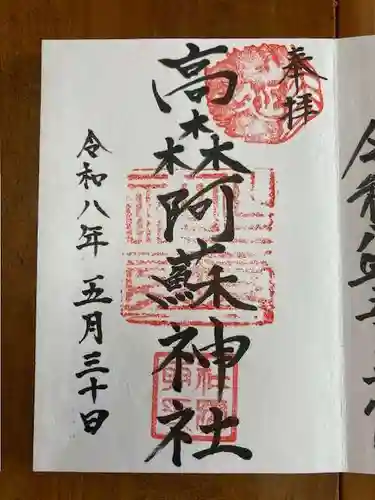 奉拝
高森阿蘇神社
令和八年 五月三十日